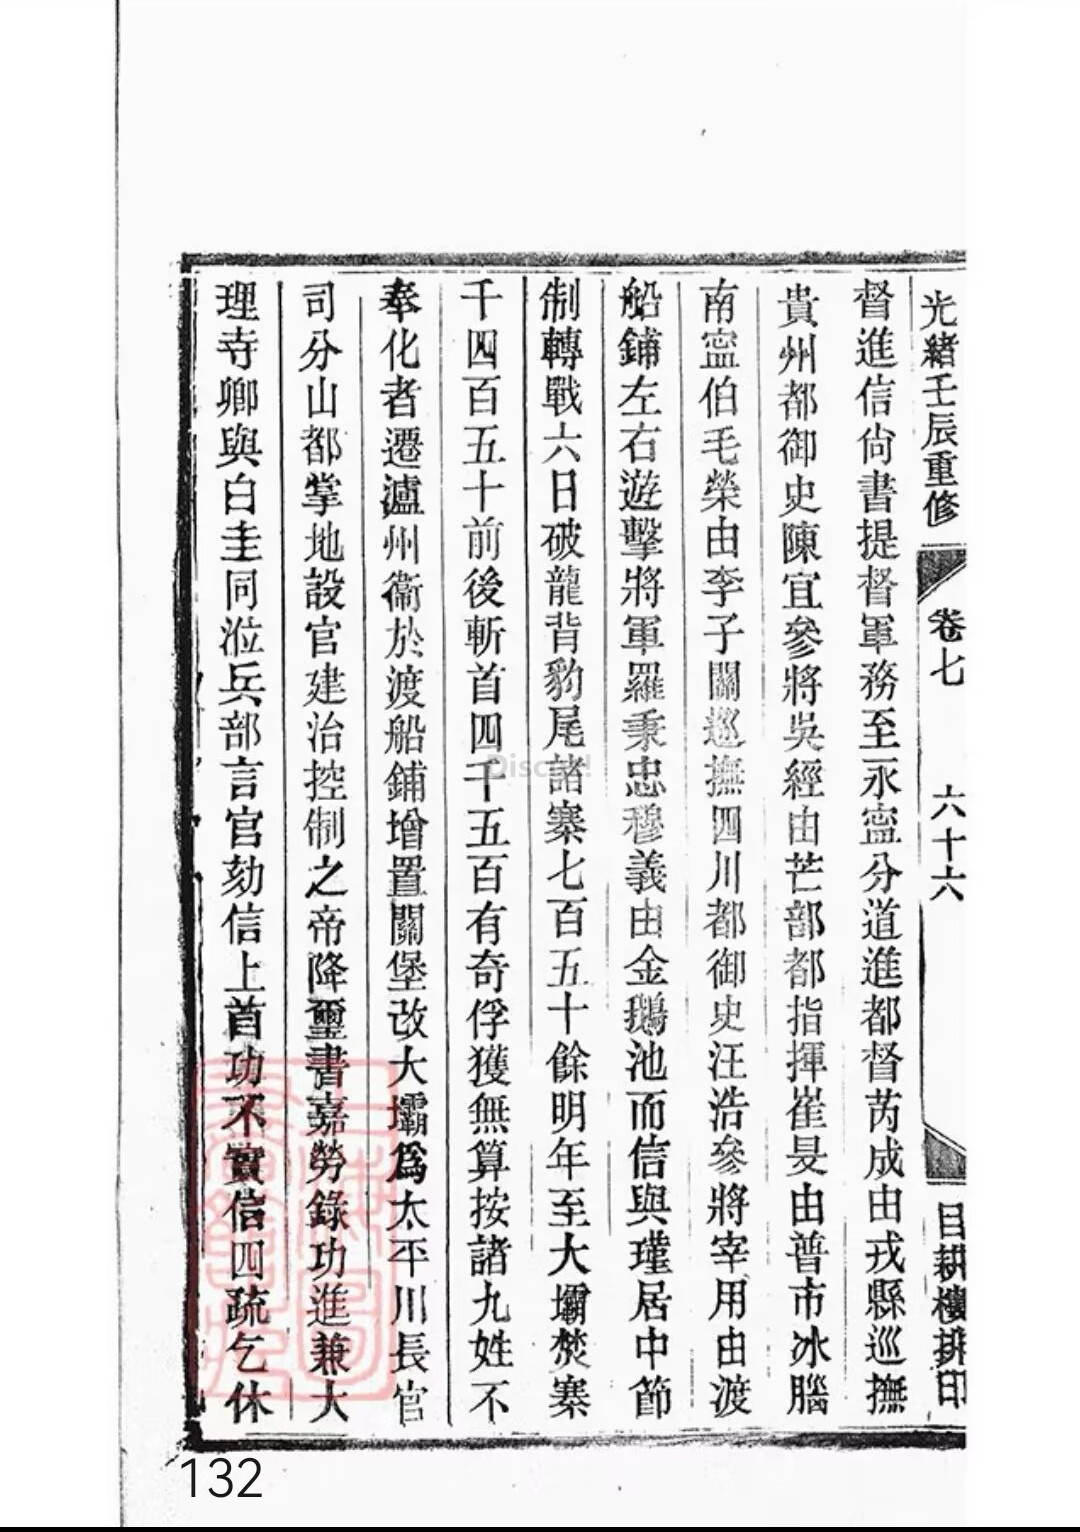 光緒壬辰重修
卷七
六十六
目耕樓排印
督進信尙書提督軍務至永寧分道進都督芮成由戎縣巡撫
貴州都御史陳宜參將吳經由芒部都指揮崔旻由普市冰腦
南寧伯毛榮由李子關巡撫四川都御史汪浩參將宰用由渡
船鋪左右遊擊將軍羅秉忠穆義由金鵝池而信與瑾居中節
制轉戰六日破龍背豹尾諸寨七百五十餘明年至大壩焚寨
千四百五十前後斬首四千五百有奇俘獲無算按諸九姓不
奉化者遷瀘州衞於渡船鋪增置關堡改大壩爲太平川長官
司分山都掌地設官建治控制之帝降璽書嘉勞錄功進兼大
理寺卿與白圭同涖兵部言官劾信上首功不實信四疏乞休
132